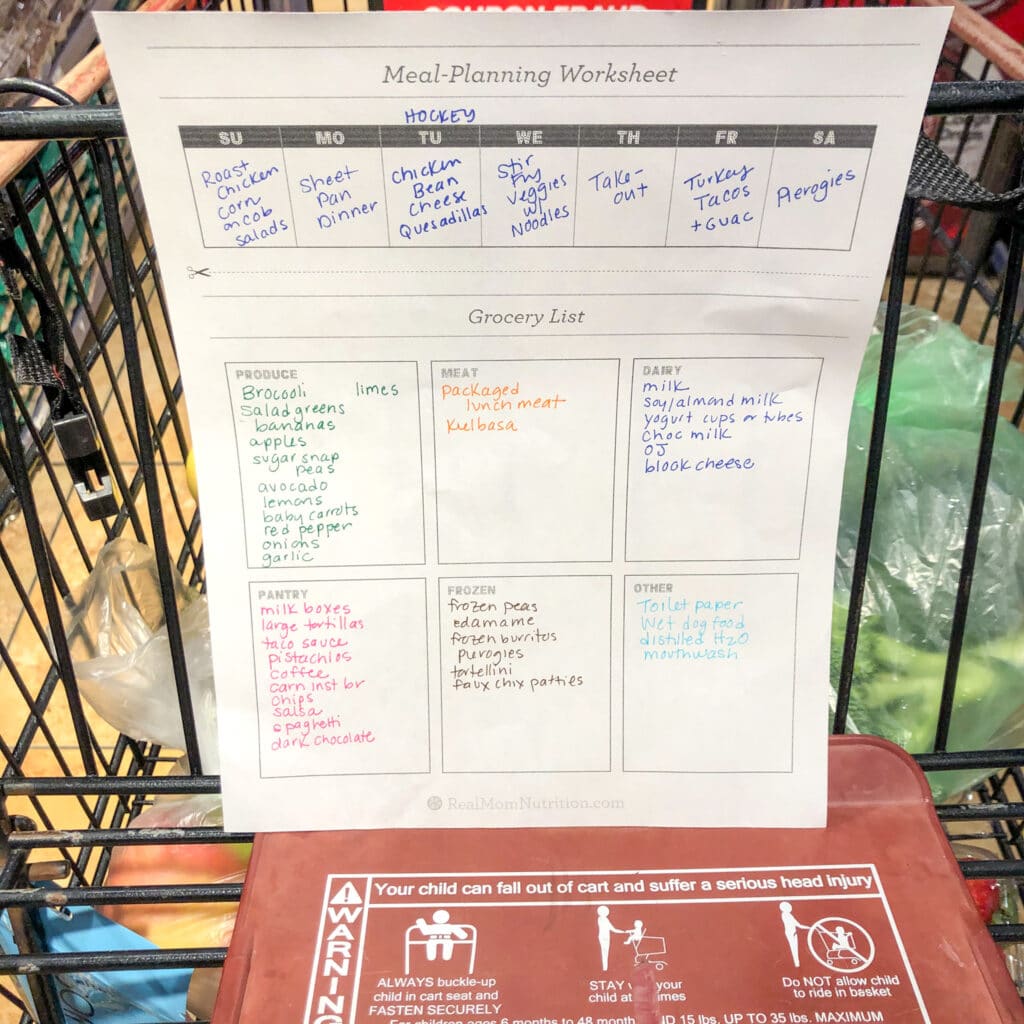 COUPON FRAUD
Meal-Planning Worksheet
HOCKEY
SU MO TU WE TH FR SA
Roast
Chicken
Corn
on cob
salads
Sheet
Pan
Dinner
Chicken
Bean
Cheese
Quesadillas
Stir
Fry
Veggies
w/
Noodles
Take-
out
Turkey
Tacos
+ Guac
Pierogies
Grocery List
PRODUCE
Brocooli limes
Salad greens
bananas
apples
sugar snap
peas
avocado
lemons
baby carrots
red pepper
onions
garlic
MEAT
packaged
lunch meat
Kielbasa
DAIRY
milk
soy/almond milk
yogurt cups or tubes
choc milk
OJ
block cheese
PANTRY
milk boxes
large tortillas
taco sauce
pistachios
coffee
carn inst br
chips
salsa
spaghetti
dark chocolate
FROZEN
frozen peas
edamame
frozen burritos
pierogies
tortellini
faux chix patties
OTHER
Toilet paper
Wet dog food
distilled H2O
mouthwash
RealMomNutrition.com
WARNING
Your child can fall out of cart and suffer a serious head injury
ALWAYS buckle-up
child in cart seat and
FASTEN SECURELY
STAY your
child at
Do NOT allow child
to ride in basket
For children ages 6 months to 48 month 15 lbs. UP TO 35 lbs. MAXIMUM